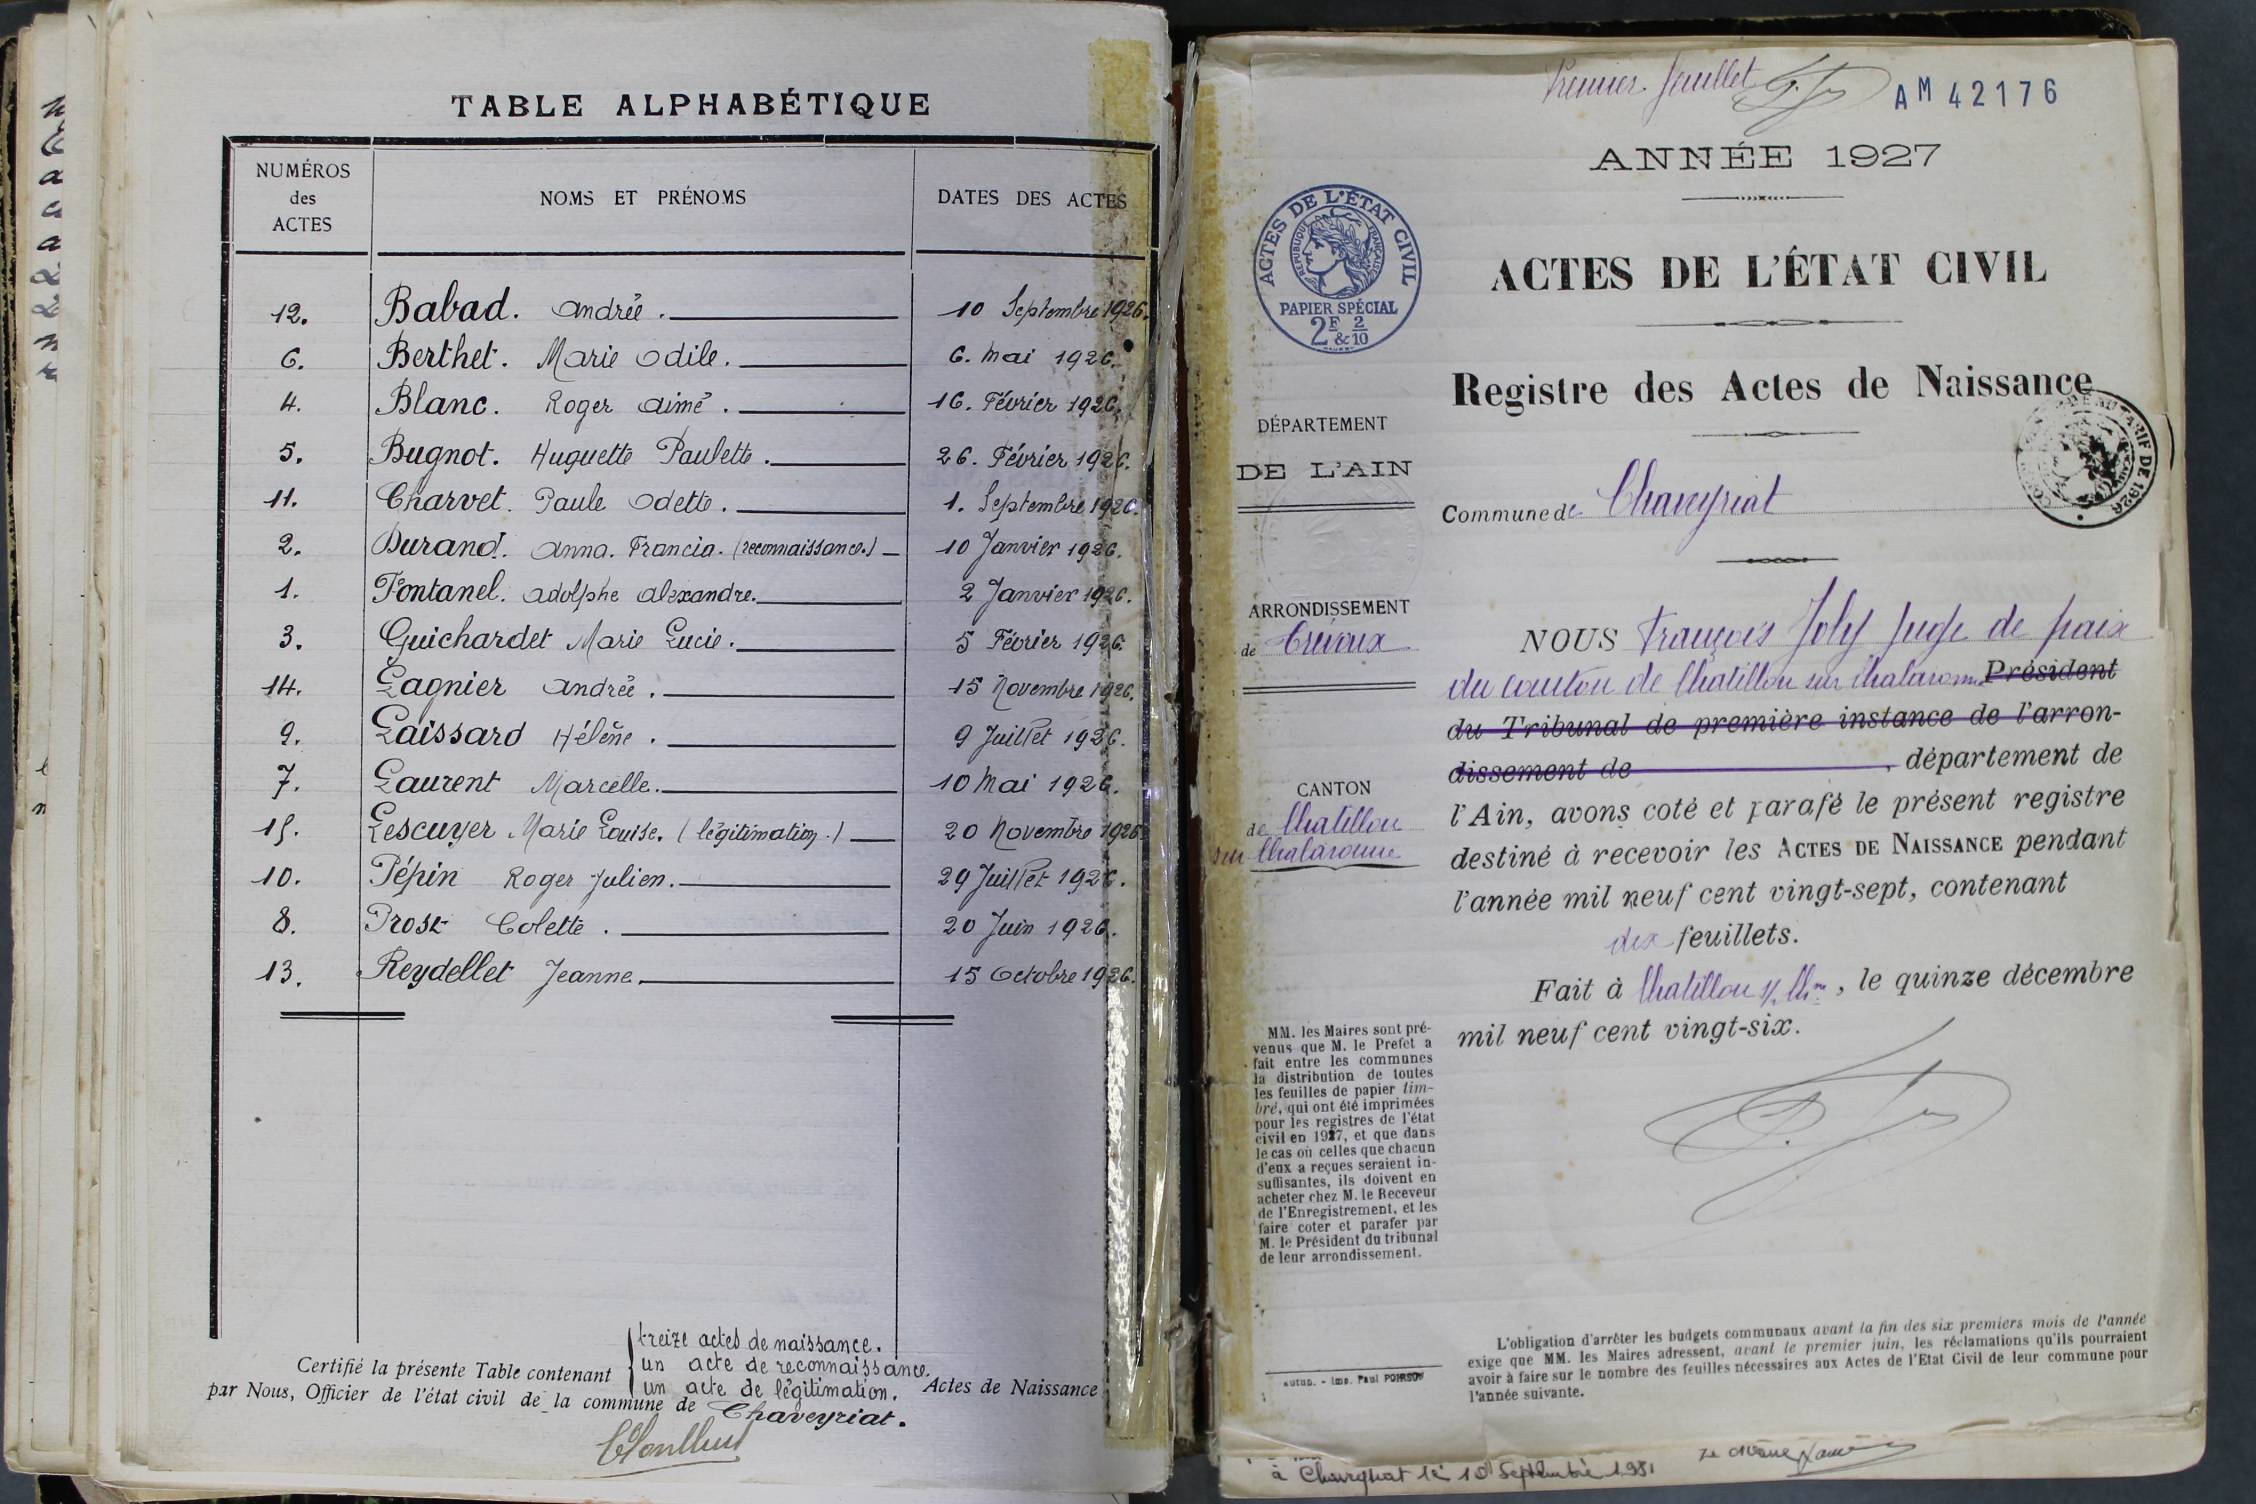 TABLE ALPHABÉTIQUE
NUMÉROS des ACTES
NOMS ET PRÉNOMS
DATES DES ACTES
12. Babad. Andrée. 10 Septembre 1926.
6. Berthet. Marie Odile. 6. Mai 1926.
4. Blanc. Roger Aimé. 16. Février 1926.
5. Bugnot. Huguette Paulette. 26. Février 1926.
11. Charvet. Paule Odette. 1. Septembre 1926.
2. Durand. Anna. Francia. (reconnaissance.) 10 Janvier 1926.
1. Fontanel. Adolphe Alexandre. 2 Janvier 1926.
3. Guichardet Marie Lucie. 5 Février 1926.
14. Lagnier Andrée. 15 Novembre 1926.
9. Laissard Hélène. 9 Juillet 1926.
7. Laurent Marcelle. 10 Mai 1926.
15. Lescuyer Marie Louise. (légitimation.) 20 Novembre 1926.
10. Pépin Roger Julien. 29 Juillet 1926.
8. Prost Colette. 20 Juin 1926.
13. Reydellet Jeanne. 15 Octobre 1926.
treize actes de naissance.
un acte de reconnaissance.
un acte de légitimation.
Certifié la présente Table contenant Actes de Naissance
par Nous, Officier de l'état civil de la commune de Chaveyriat.
Premier feuillet
AM 42176
ANNÉE 1927
ACTES DE L'ÉTAT CIVIL
RÉPUBLIQUE FRANÇAISE
PAPIER SPÉCIAL
2F & 2/10
ACTES DE L'ÉTAT CIVIL
Registre des Actes de Naissance
TARIF DE 1926
DÉPARTEMENT
DE L'AIN
Commune de Chaveyriat
ARRONDISSEMENT
de Trévoux
CANTON
de Chatillon
sur Chalaronne
NOUS François Joly Juge de paix
du canton de Chatillon sur Chalaronne Président
du Tribunal de première instance de l'arron-
dissement de , département de
l'Ain, avons coté et parafé le présent registre
destiné à recevoir les ACTES DE NAISSANCE pendant
l'année mil neuf cent vingt-sept, contenant
dix feuillets.
Fait à Chatillon s/ Chne, le quinze décembre
mil neuf cent vingt-six.
MM. les Maires sont pré-
venus que M. le Prefet a
fait entre les communes
la distribution de toutes
les feuilles de papier tim-
bré, qui ont été imprimées
pour les registres de l'état
civil en 1927, et que dans
le cas où celles que chacun
d'eux a reçues seraient in-
suffisantes, ils doivent en
acheter chez M. le Receveur
de l'Enregistrement, et les
faire coter et parafer par
M. le Président du tribunal
de leur arrondissement.
L'obligation d'arrêter les budgets communaux avant la fin des six premiers mois de l'année
exige que MM. les Maires adressent, avant le premier juin, les réclamations qu'ils pourraient
avoir à faire sur le nombre des feuilles nécessaires aux Actes de l'Etat Civil de leur commune pour
l'année suivante.
AUTUN. - Imp. Paul POIRSON
à Chaveyriat le 10 Septembre 1981